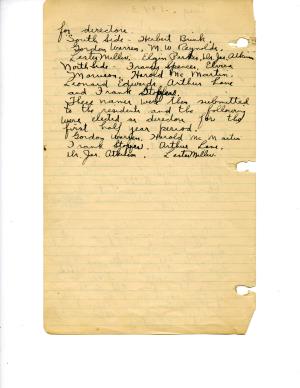 for directors
South Side - Herbert Brink
Gordon Warren, M. W. Reynolds,
Lester Miller, Elgin Parks, Dr. Jas. Atkin
North Side - Francis Spencer, Elvera
Morrison, Harold Mc Martin,
Leonard Edwards, Arthur Lane
and Frank
These names were then submitted
to the residents and the following
were elected as directors for the
first half year period.
Gordon Warren, Harold Mc Martin
Frank Arthur Lane,
Dr. Jas. Lester Miller.